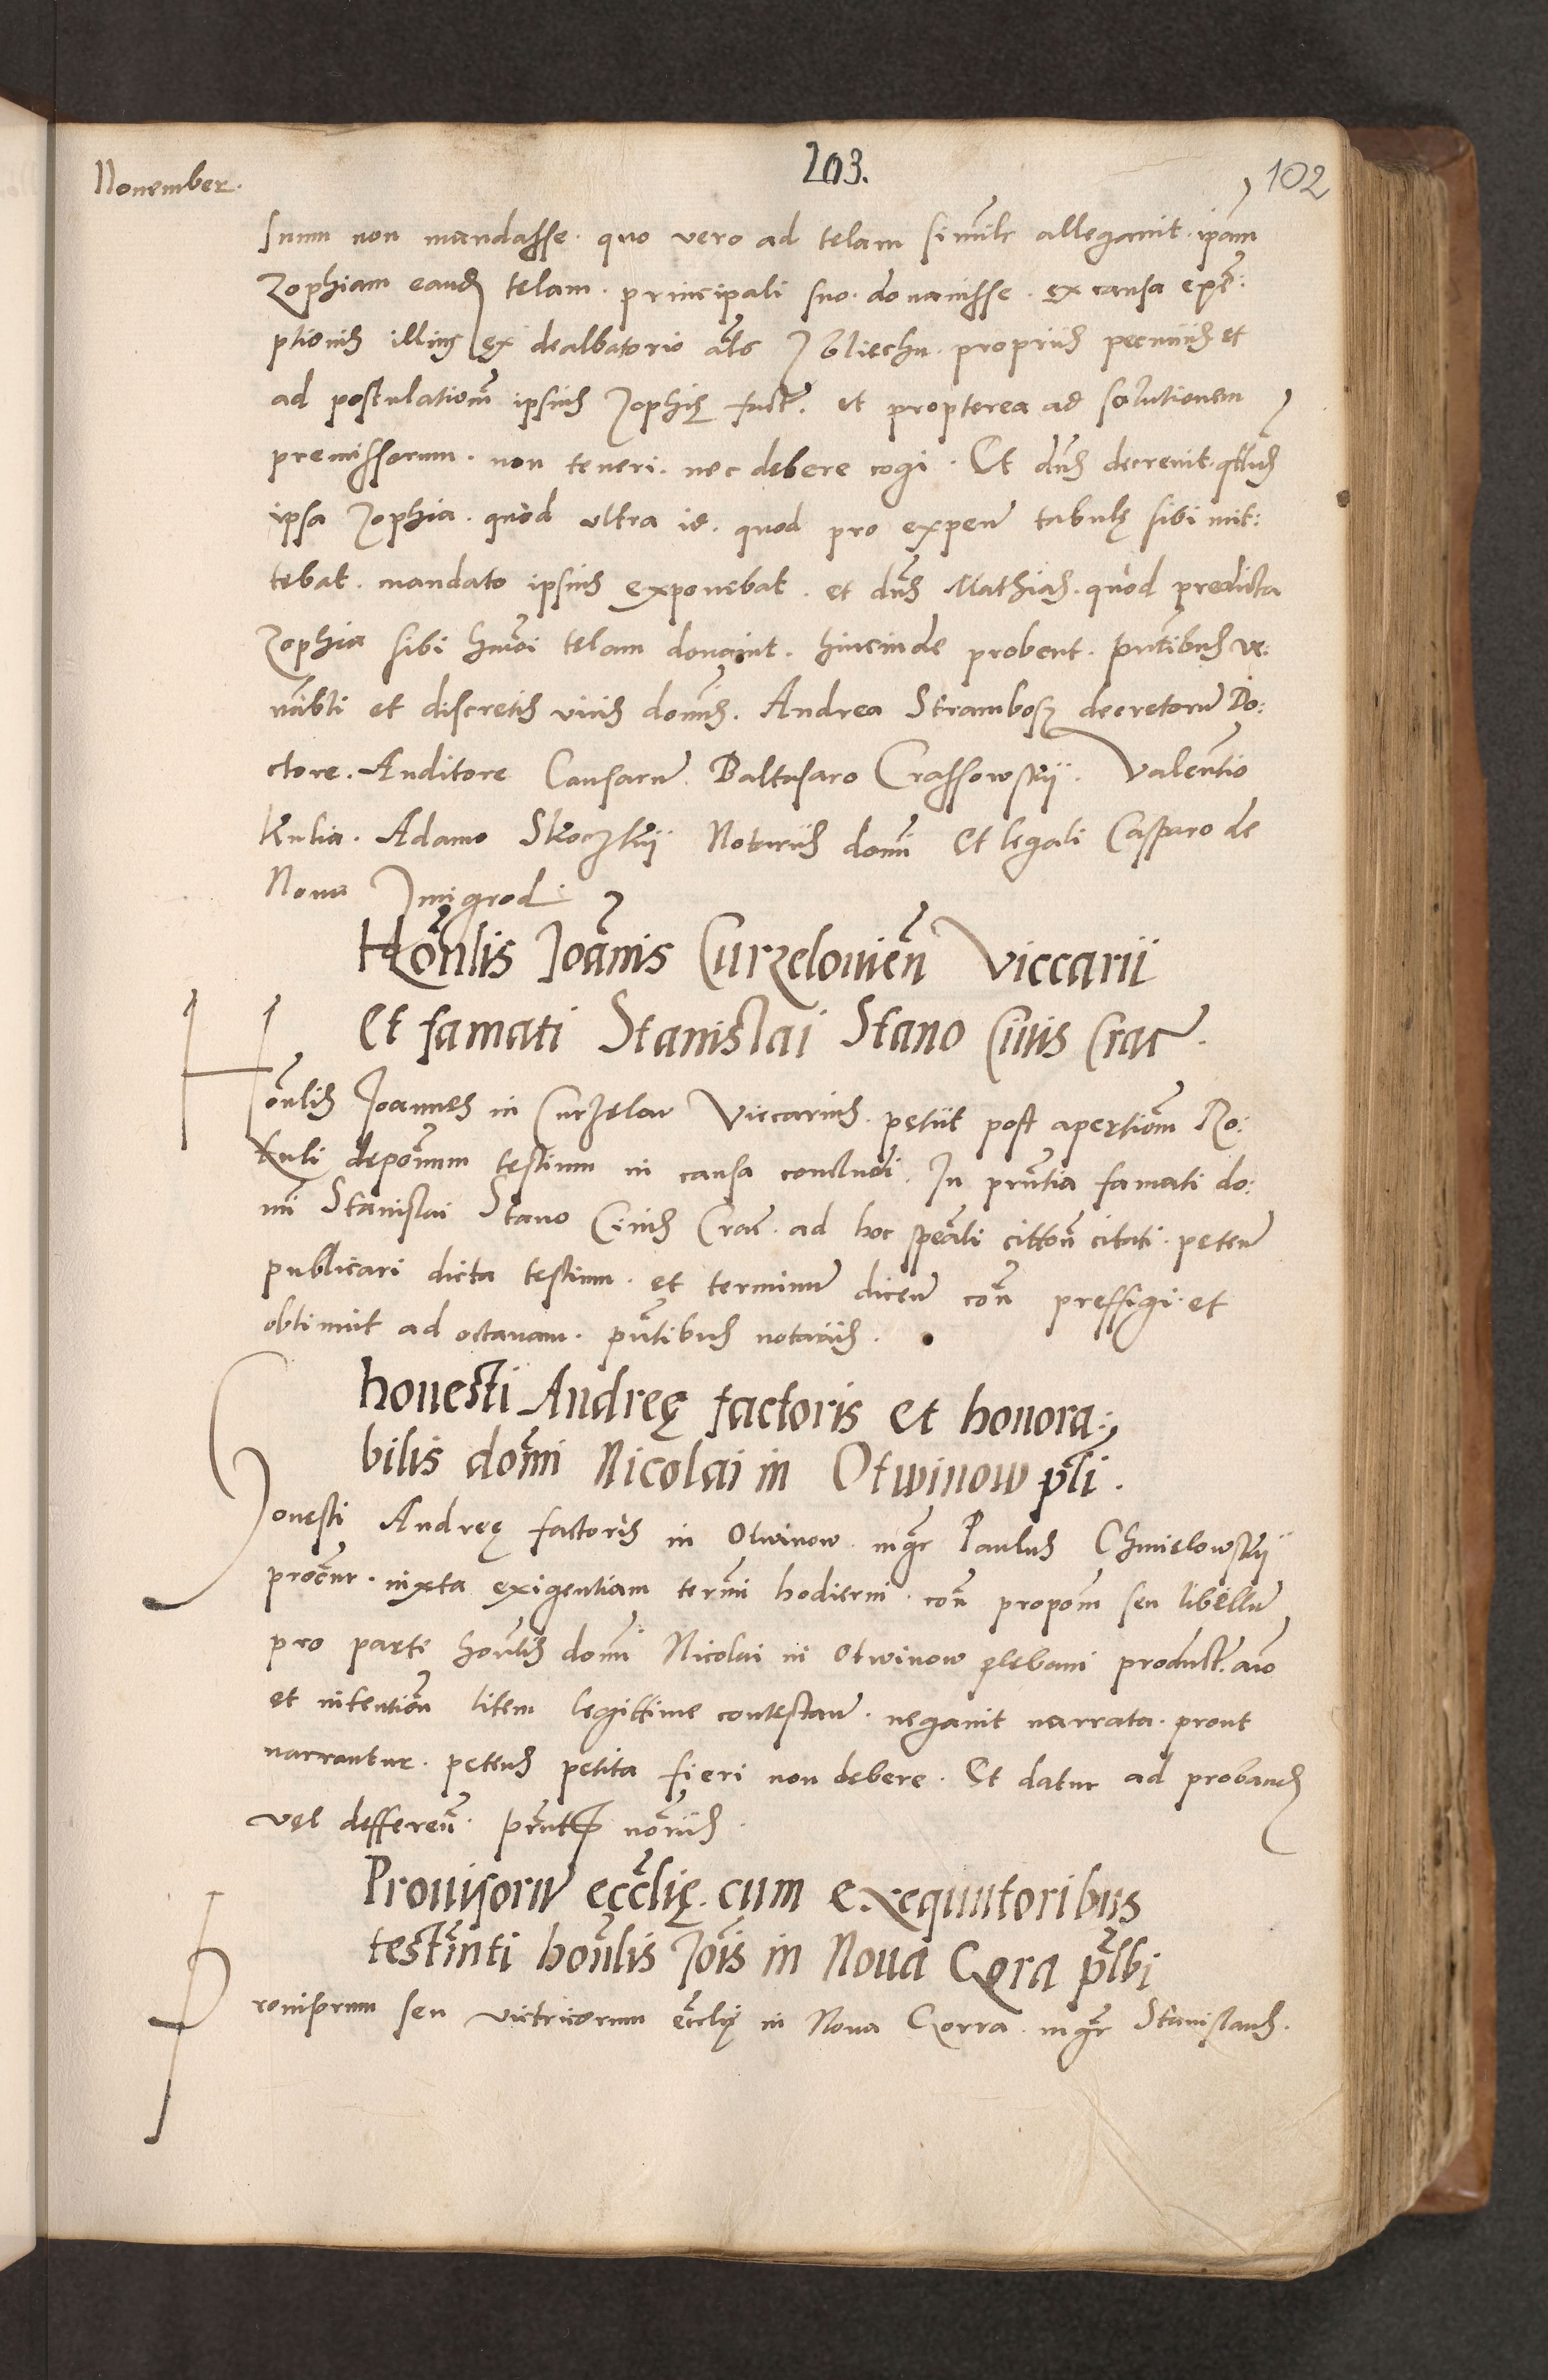 November.
203.
102
suum non mandasse. quo vero ad telam similr allegauit. ipam
Zophiam eand telam. principali suo. donauisse. ex causa exe:
ptionis illius ex dealbatorio als z bliechu. propriis pecuniis et
ad postulationem ipsius Zophię fact. et propterea ad solutionem
premissorum. non teneri. nec debere cogi. Et dns decreuit.
ipsa Zophia. quod ultra id. quod pro expen tabulę sibi mit:
tebat. mandato ipsius exponebat. et dns Mathias. quod predicta
Zophia sibi hmoi telam donauit. hincinde probent. pntibus ve:
nabli et discretis viris domis. Andrea Strambosz decretorum Do:
ctore. Auditore Causarum. Baltasaro Crassowskij. Valentio
Kulia. Adamo Skoczskij Notariis domi Et legali Casparo de
Noua Zmigrod.
Honlis Joannis Curzelouien Viccarii
Et famati Stanislai Stano Ciuis Crac.
Honlis Joannes in Curzelow Viccarius. petiit post apertiom Ro:
tuli deponum testium in causa concludi. In pntia famati do:
mi Stanislai Stano Ciuis Crac. ad hoc speali cittom citati. peten
publicari dicta testium. et terminum dicen con preffigi. et
obtinuit ad octauam. pntibus notariis.
honesti Andreę factoris et honora:
bilis domi Nicolai in Otwinow pli.
Honesti Andreę factoris in Otwinow. mgr Paulus Chmielowskij
procur. iuxta exigentiam termi hodierni. con propom seu libellum
pro parte honlis domi Nicolai in Otwinow plebani product. aio
et intention litem legittime contestan. negauit narrata. prout
narrantur. petens petita fieri non debere. Et datur ad proband
vel defferen. prntt noriis.
Prouisorum ecclię. cum exequutoribus
testmnti honlis Jois in Noua Gora plbi
Prouisorum seu victricorum ecclię in Noua Gorra. mgr Stanislaus.